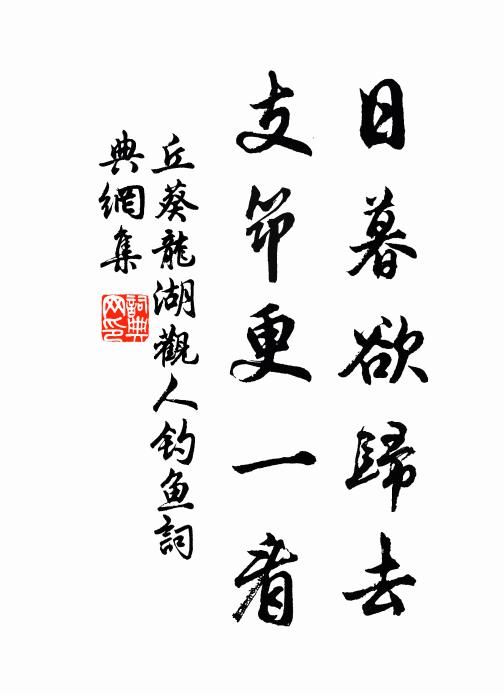 日暮欲歸去
支筇更一看
丘葵龍湖觀人钓鱼詞
典網集
詞典网印